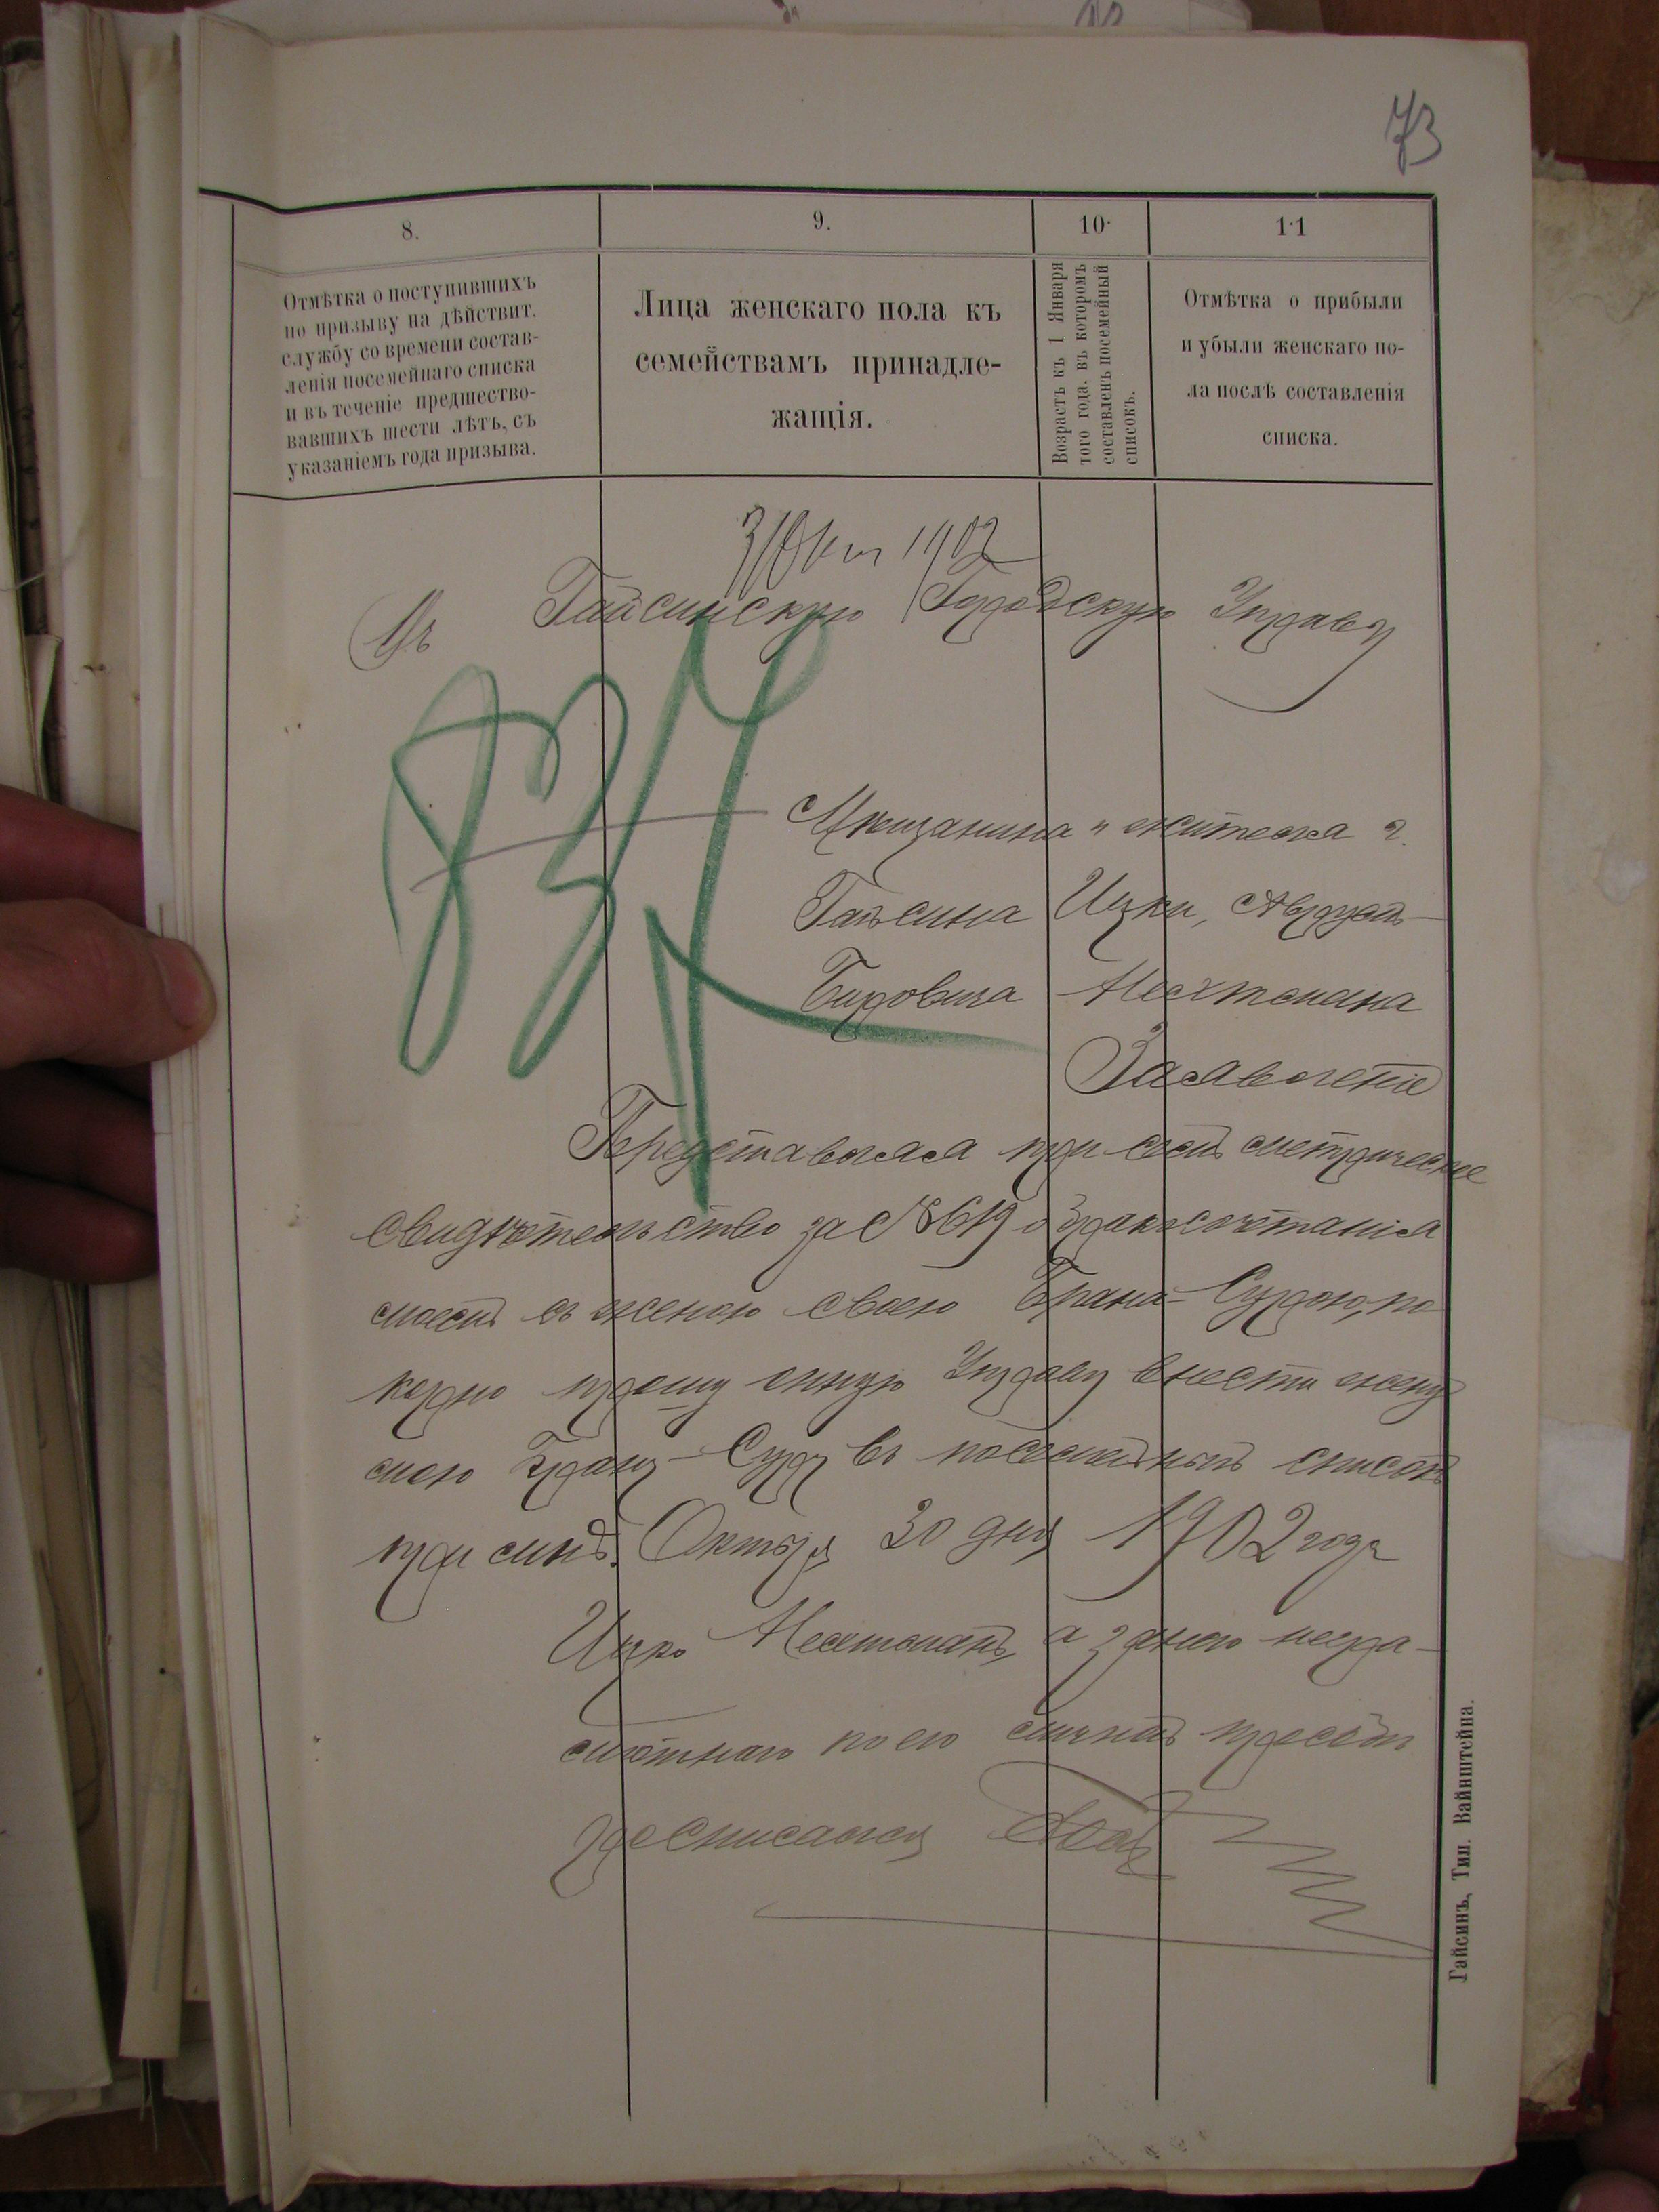 73
8.
9.
10.
11
Отмѣтка о поступившихъ
по призыву на дѣйствит.
службу со времени состав-
ленія посемейнаго списка
и въ теченіе предшество-
вавшихъ шести лѣтъ, съ
указаніемъ года призыва.
Лица женскаго пола къ
семействамъ принадле-
жащія.
Возрастъ къ 1 Января
того года, въ которомъ
составленъ посемейный
списокъ.
Отмѣтка о прибыли
и убыли женскаго по-
ла послѣ составленія
списка.
1902
Въ Гайсинскую Городскую Управу
Мѣщанина и жителя г.
Гайсина Ицки, Аврумъ-
Беровича Нехтмана
Заявленіе
Представляя при семъ метрическое
свидѣтельство за № 619 о бракосочетаніи
моемъ съ женою своею Брана-Сурою, по
корно прошу оную Управу внести жену
мою Брану-Суру въ посемейный списокъ
при мнѣ. Октября 30 дня 1902 года
Ицко Нехтманъ, а за него негра-
мотнаго по его личной просьбѣ
росписался
Гайсинъ, Тип. Вайнштейна.